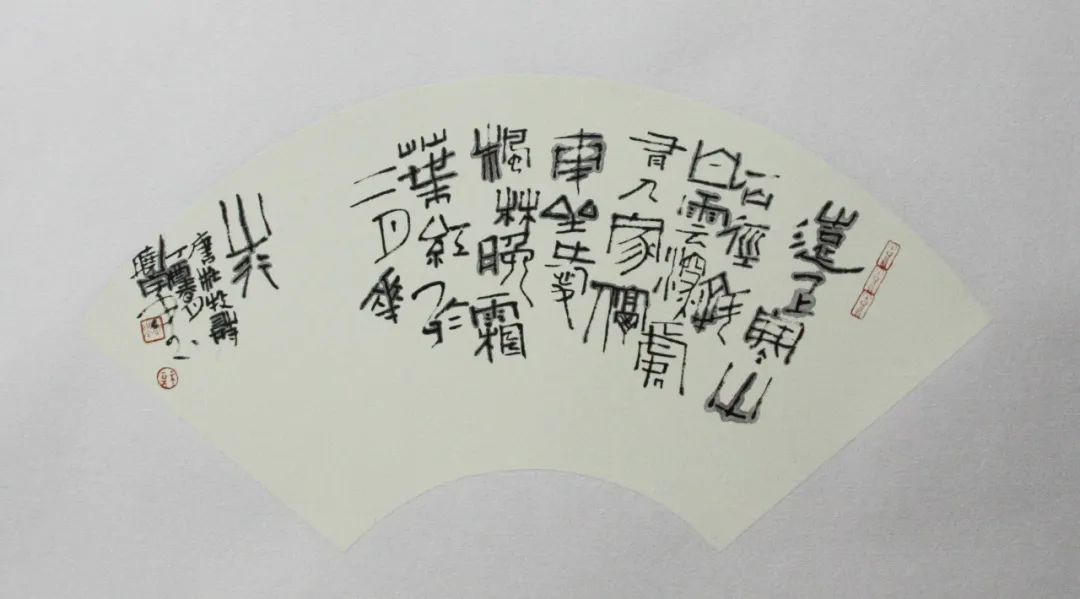 遠上寒山
石徑斜
白雲深處
有人家停
車坐愛
楓林晚霜
葉紅於
二月花
山行
唐杜牧詩